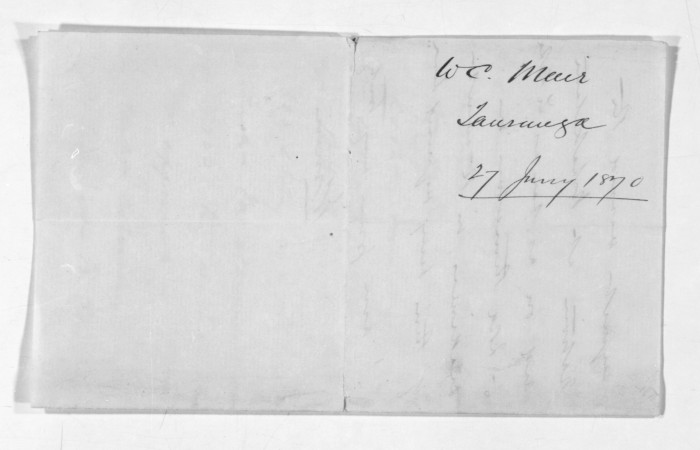 W C. Mair
Tauranga
27 Jany 1870